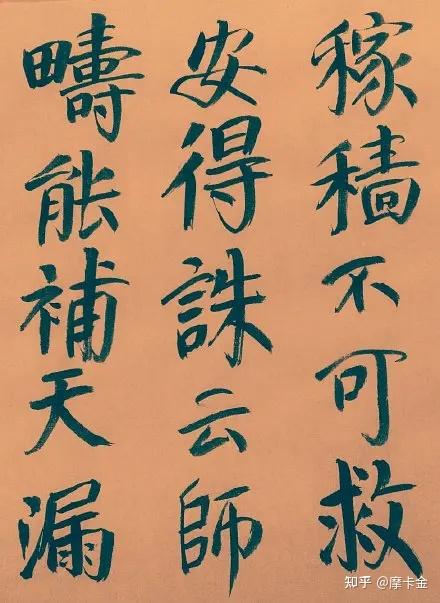 稼穡不可救
安得誅云師
疇能補天漏
知乎 @摩卡金